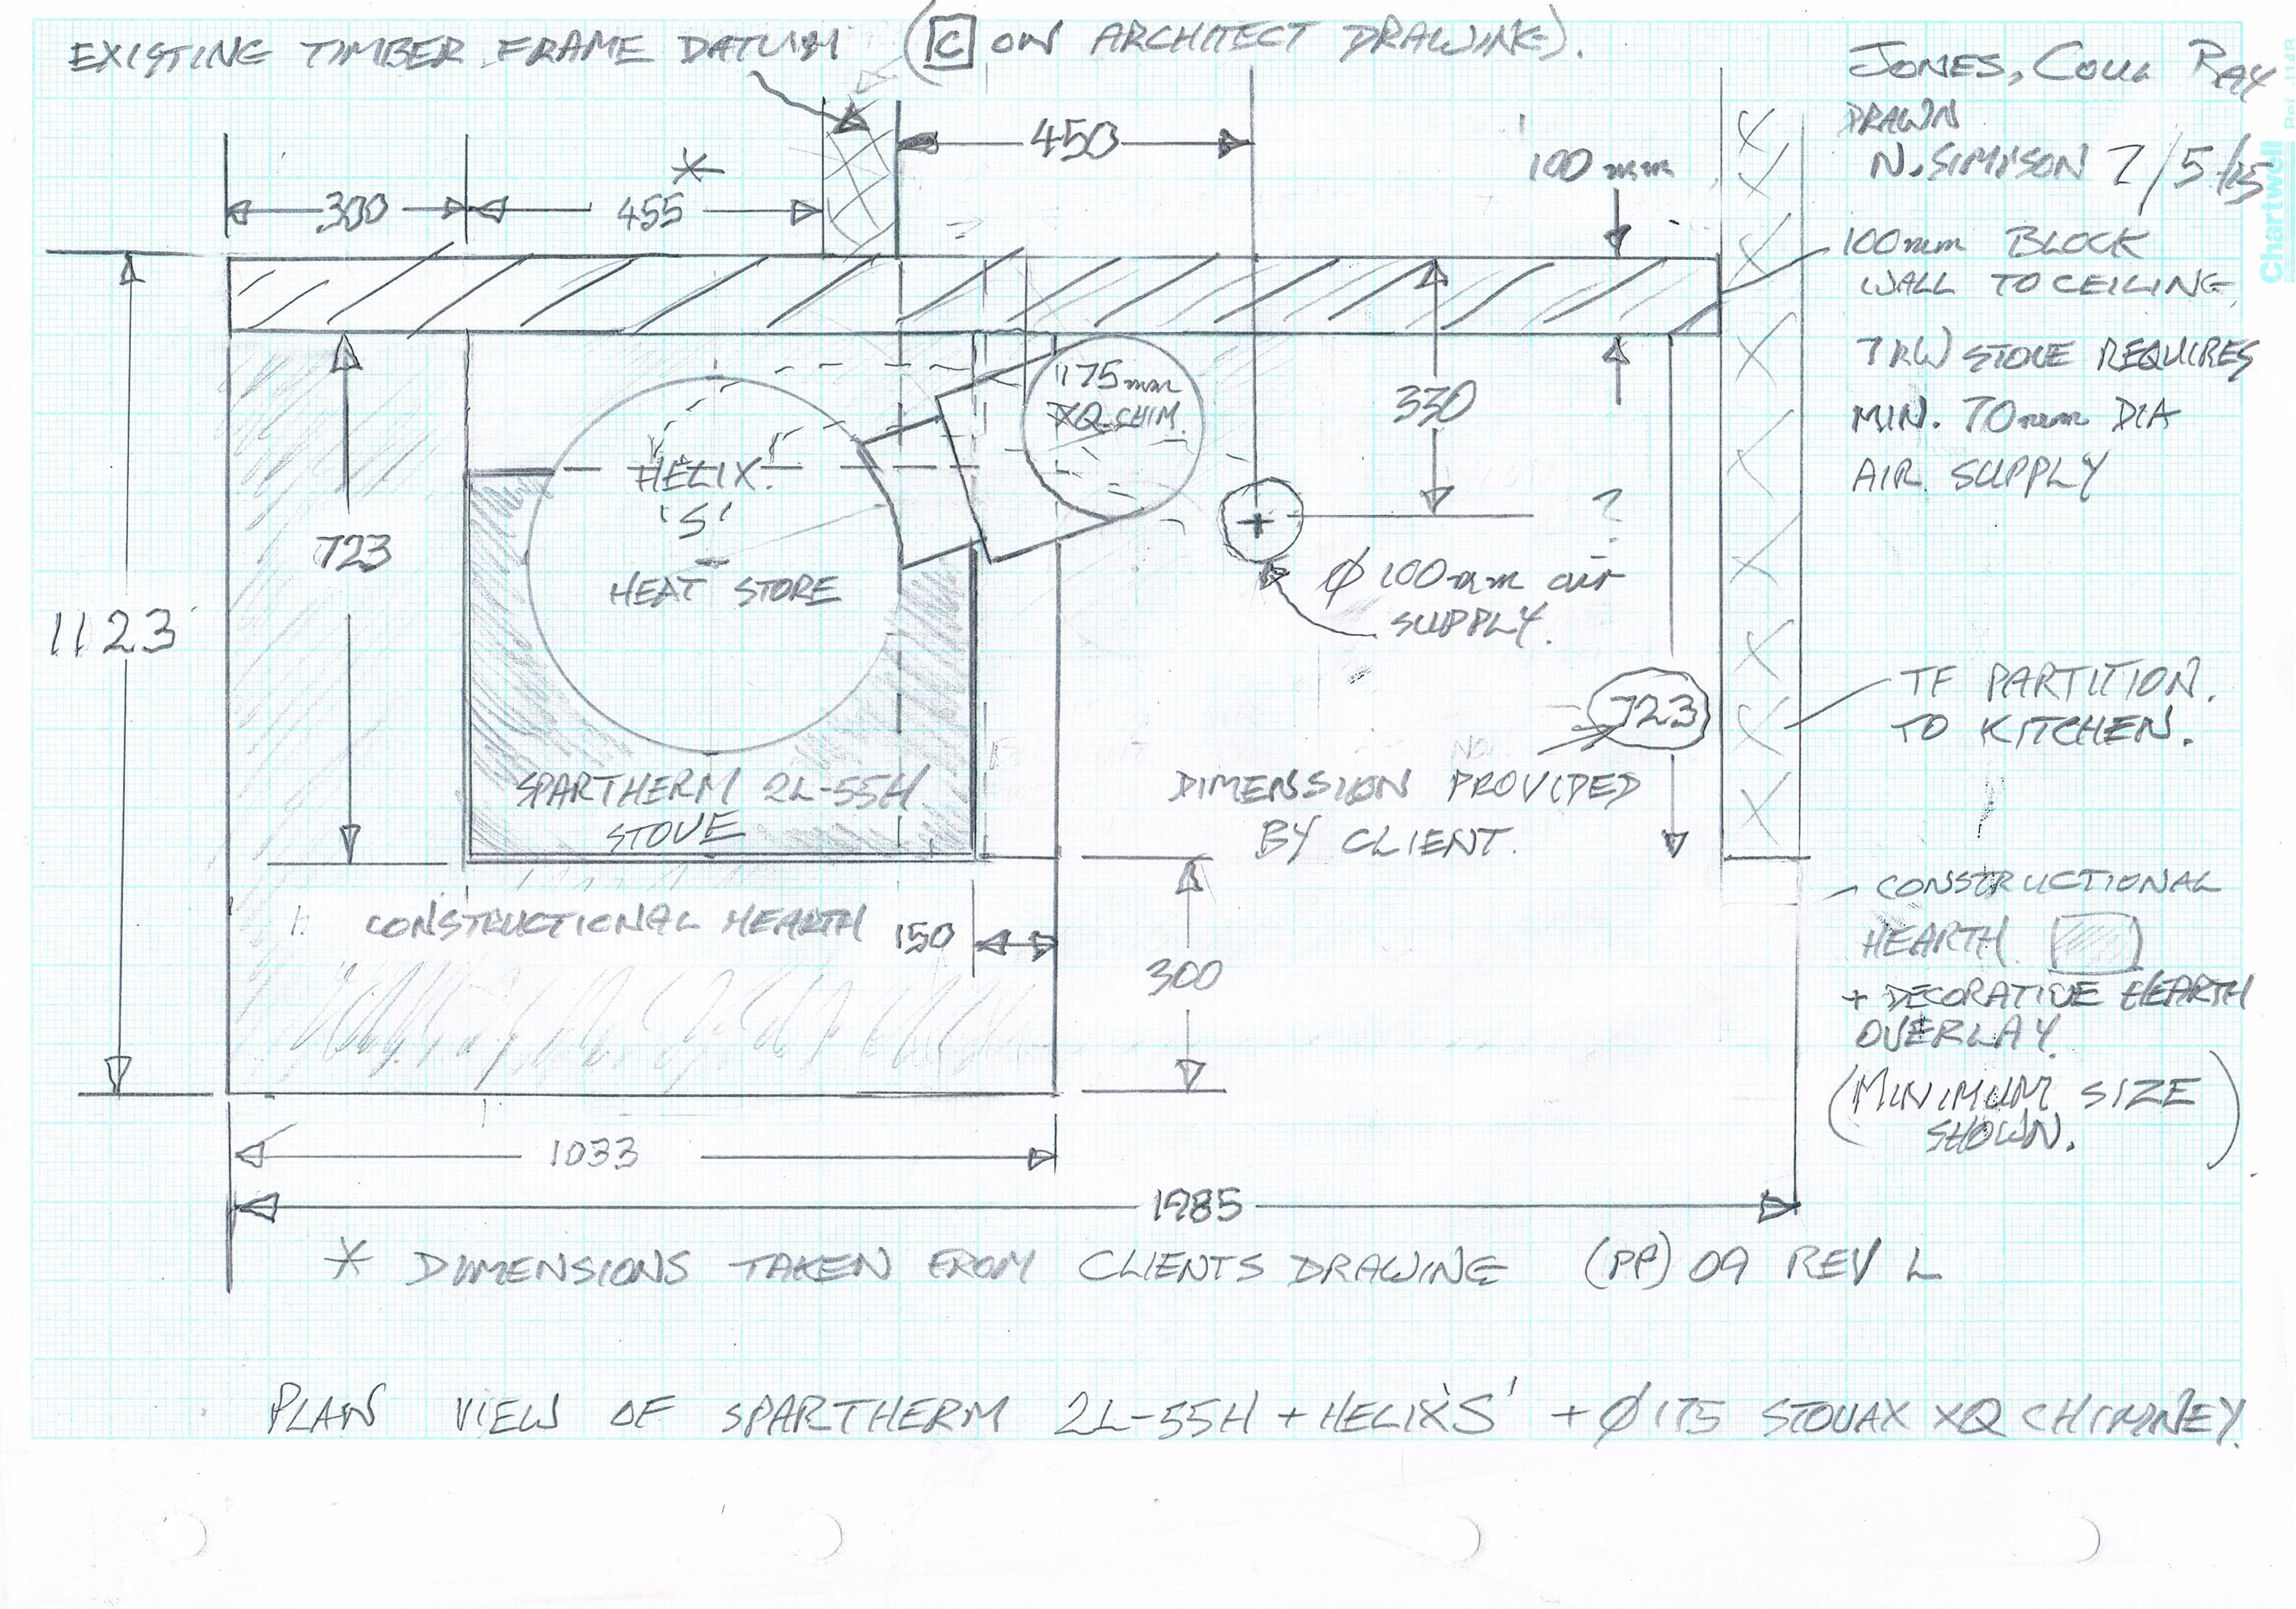 EXISTING TIMBER FRAME DATUM (C ON ARCHITECT DRAWING).
JONES, COUL RAY
DRAWN
N. SIMPSON 7/5/15
450
*
300
455
100mm
100mm BLOCK
WALL TO CEILING.
7KW STOVE REQUIRES
MIN. 70mm DIA
AIR SUPPLY
175mm
XQ CHIM.
330
HELIX
'S'
HEAT STORE
723
1123
?
Ø 100mm air
SUPPLY.
723
TF PARTITION.
TO KITCHEN.
DIMENSION PROVIDED
BY CLIENT.
SPARTHERM 2L-55H
STOVE
CONSTRUCTIONAL HEARTH
150
300
- CONSTRUCTIONAL
HEARTH
+ DECORATIVE HEARTH
OVERLAY.
(MINIMUM SIZE
SHOWN.)
1033
1985
* DIMENSIONS TAKEN FROM CLIENTS DRAWING (PP) 09 REV L
PLAN VIEW OF SPARTHERM 2L-55H + HELIX 'S' + Ø175 STOVAX XQ CHIMNEY.
Chartwell